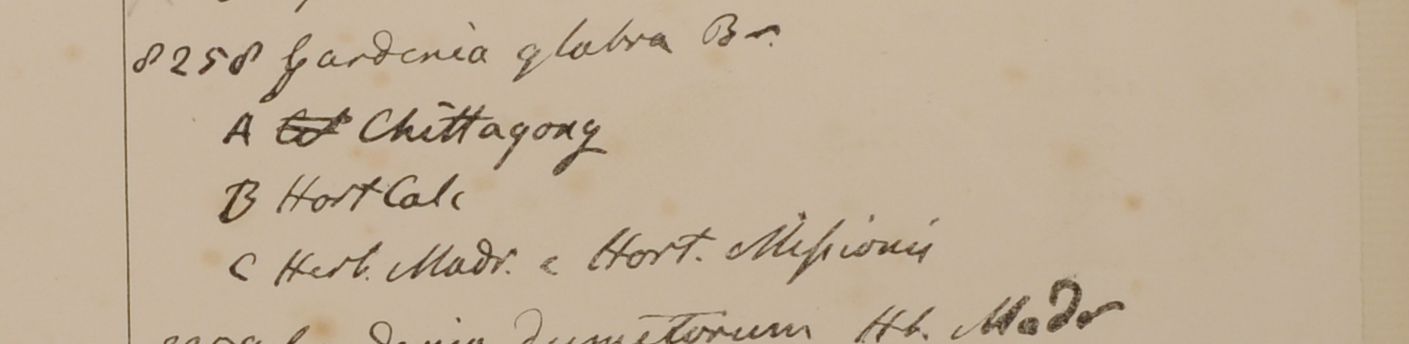 8258 Gardenia glabra Br.
A Chittagong
B Hort Calc
C Herb. Madr. e Hort. Missionis
dumetorum Hb. Madr